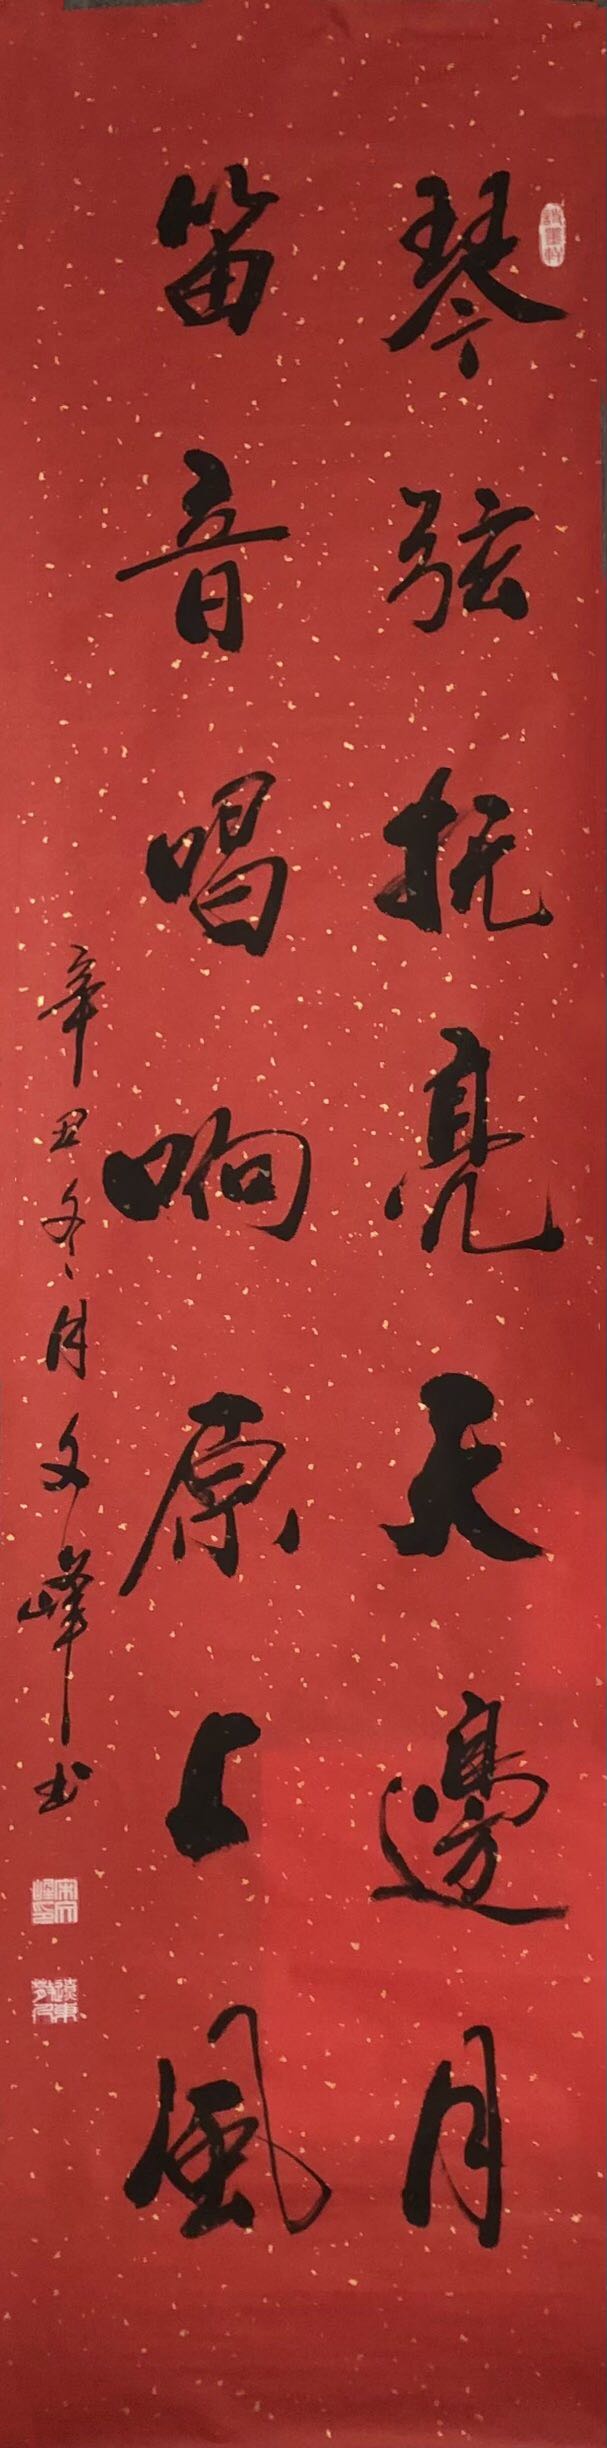 琴弦抚亮天邊月
笛音唱响原上風
辛丑冬月文峰书